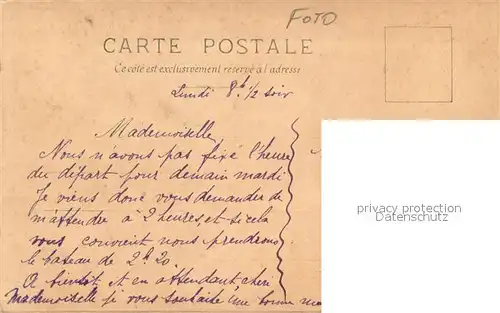 FOTO
CARTE POSTALE
Ce côté est exclusivement réservé à l'adresse
Lundi 8h 1/2 soir
Mademoiselle
Nous n'avons pas fixé l'heure
du départ pour demain mardi
Je viens donc vous demander de
m'attendre à 2 heures, et si cela
vous convient nous prendrons
le bateau de 2h 20.
A bientôt et en attendant, chère
Mademoiselle je vous souhaite une bonne
privacy protection
Datenschutz